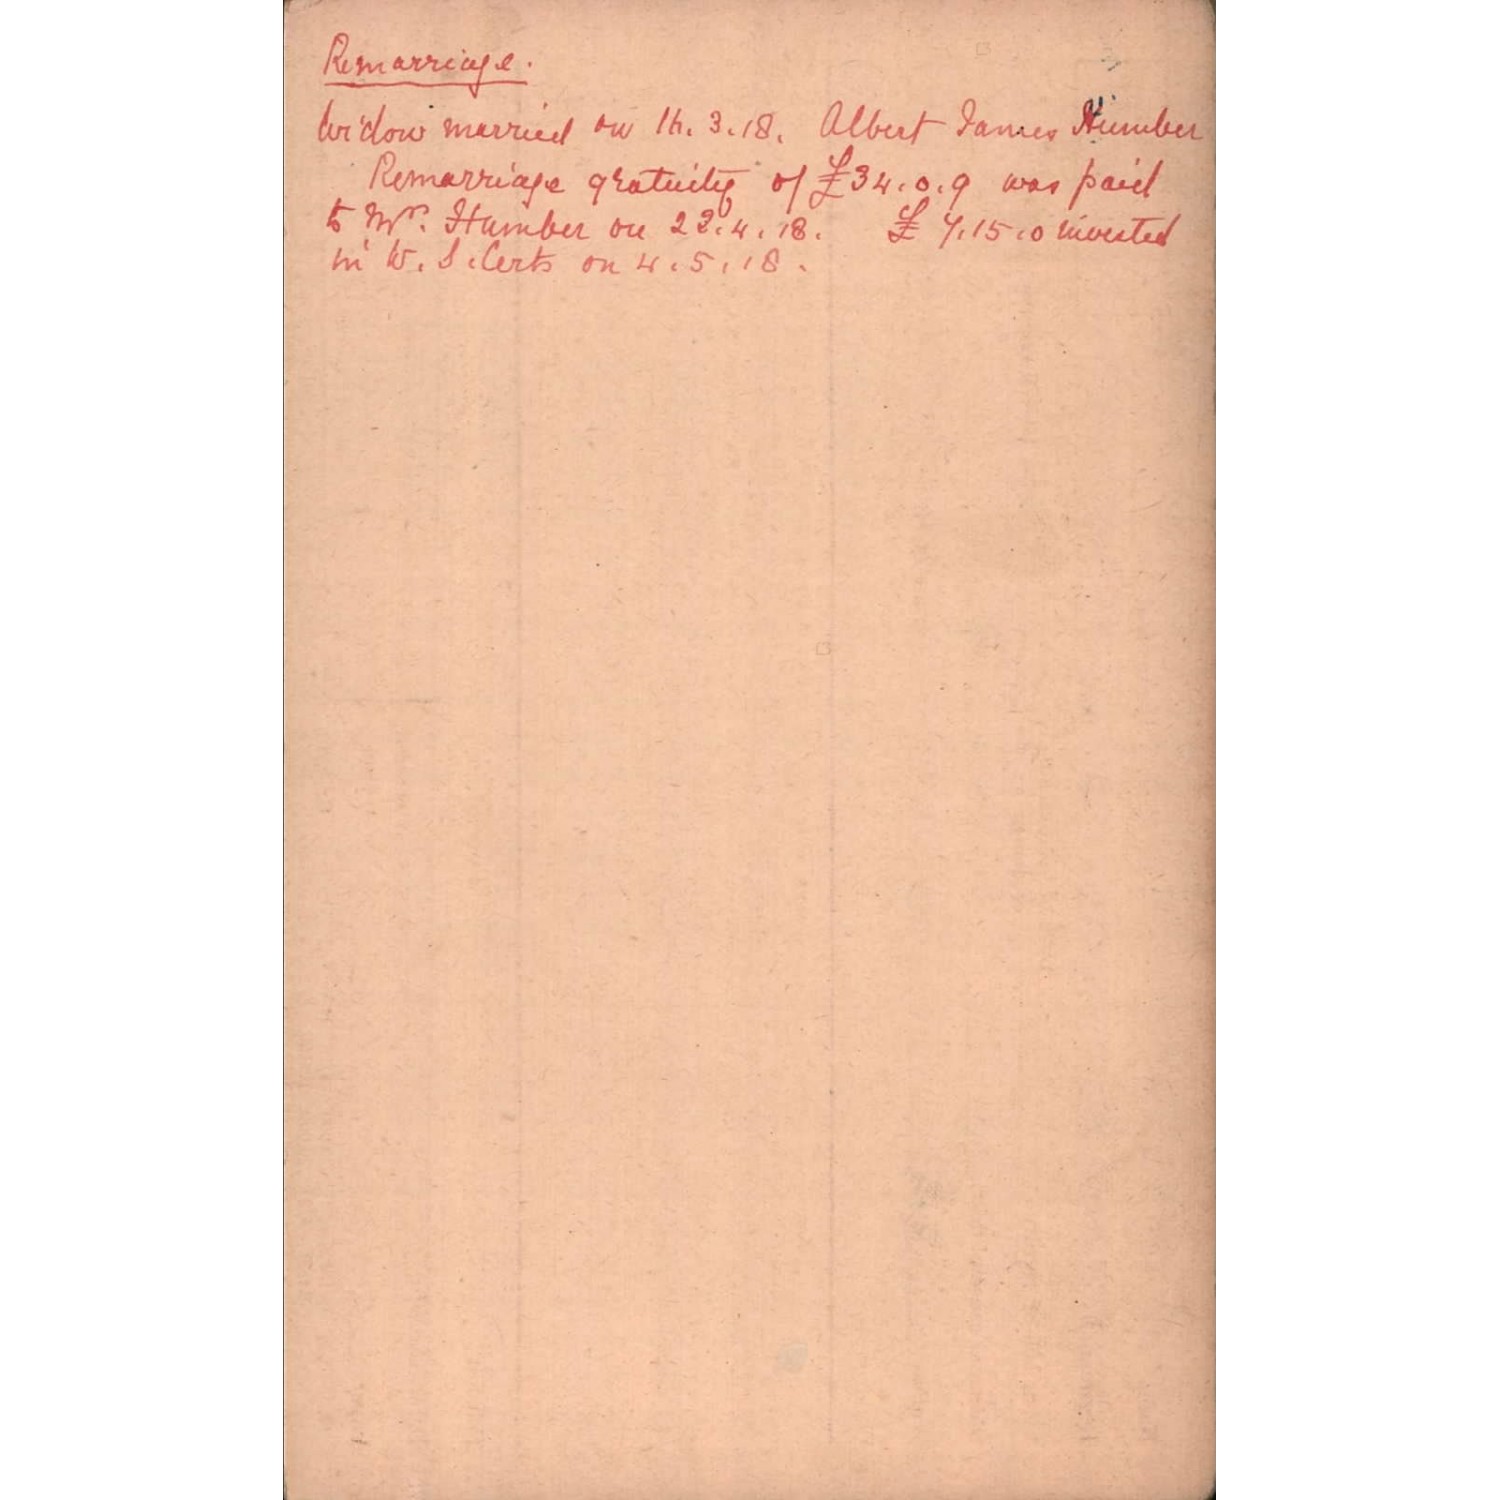 Remarriage.
Widow married on 16.3.18. Albert James Humber
Remarriage gratuity of £34.0.9 was paid
to Mrs. Humber on 22.4.18. £7.15.0 invested
in W. S. Certs on 4.5.18.